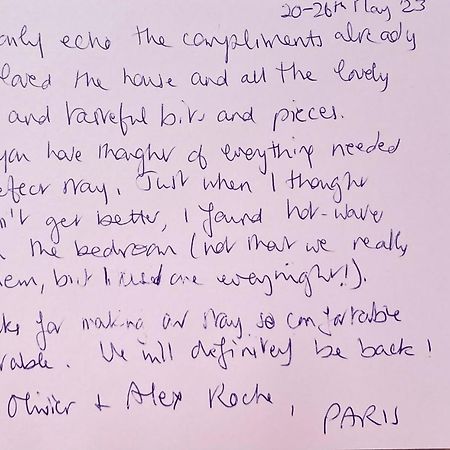 20-26th May '23
only echo the compliments already
loved the house and all the lovely
and tasteful bits and pieces.
you have thought of everything needed
efect stay. Just when I thought
n't get better, I found hot-wave
the bedroom (not that we really
hem, but I used one everynight!).
ks for making our stay so comfortable
rable. We will definitely be back!
Olivier + Alex Roche, PARIS